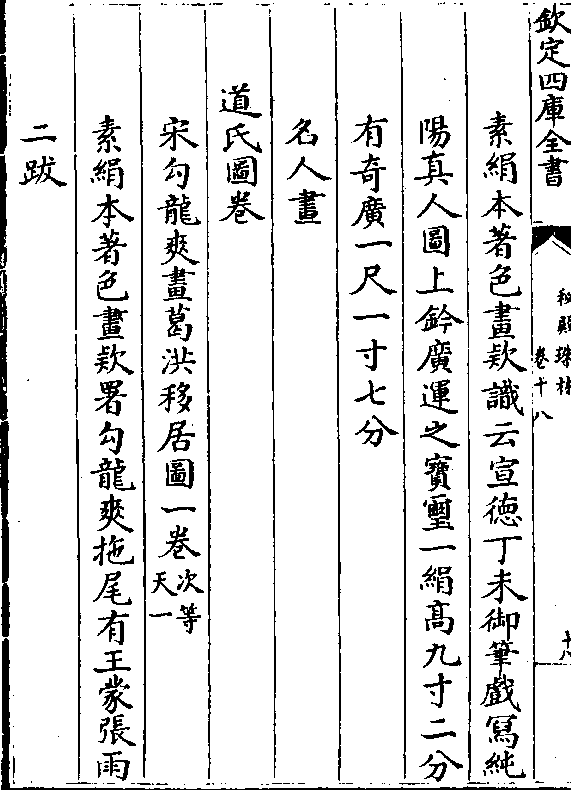 欽定四庫全書
秘殿珠林
卷十八
十八
素絹本著色畫欵識云宣徳丁未御筆戲冩純
陽真人圖上鈐廣運之寶璽一絹髙九寸二分
有奇廣一尺一寸七分
名人畫
道氏圖卷
宋勾龍爽畫葛洪移居圖一卷次等天一
素絹本著色畫欵署勾龍爽拖尾有王蒙張雨
二跋